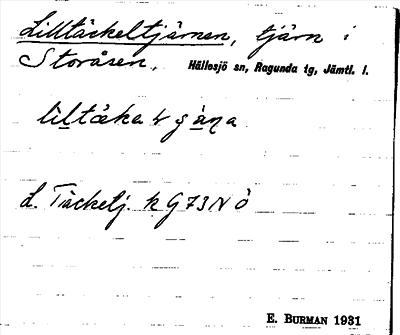 Lilltäckeltjärnen, tjärn i
Storåsen. Hällesjö sn, Ragunda tg, Jämtl. l.
L. Täckeltj. k G73NÖ
E. BURMAN 1931